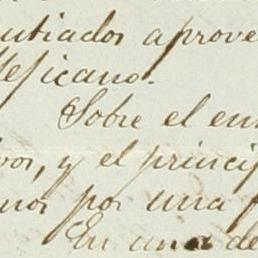 utiados aprove
Mesicano.
Sobre el en
vos, y el princip
nos por una f
En una de